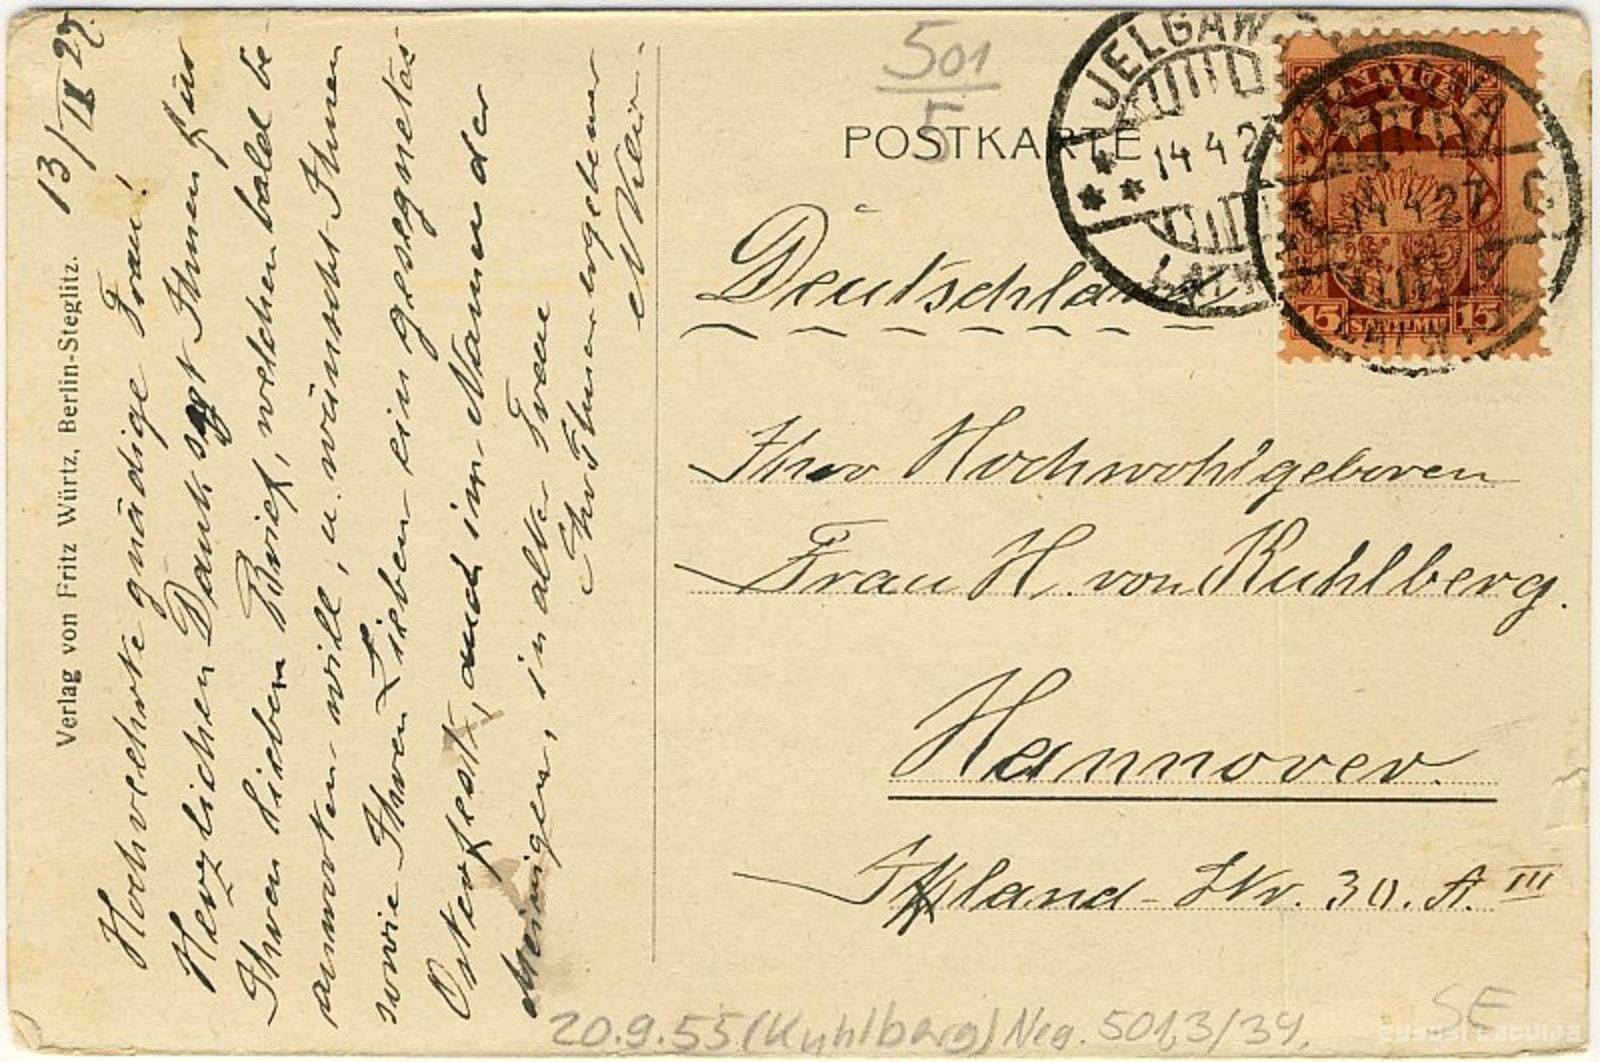 13/IV 27.
Hochverehrte gnädige Frau!
Herzlichen Dank sagt Ihnen für
Ihren lieben Brief, welchen bald be-
antworten will, u. wünscht Ihnen
sowie Ihren Lieben ein gesegnetes
Osterfest, auch im Namen der
Meinigen, in alter Treue
Ihr Ihnen ergebener
Verlag von Fritz Würtz, Berlin-Steglitz.
501
5
POSTKARTE
JELGAWA
14 4 27
LATWIJA
JELGAWA
14.4.27 C
LATWIJA
LATVIJA
15 SANTIMU 15
Deutschland
Ihro Hochwohlgeboren
Frau H. von Kuhlberg.
Hannover.
Iffland-Str. 30. A. III
20.9.55 (Kuhlberg) Neg. 5013/34.
SE
zudusi latvija